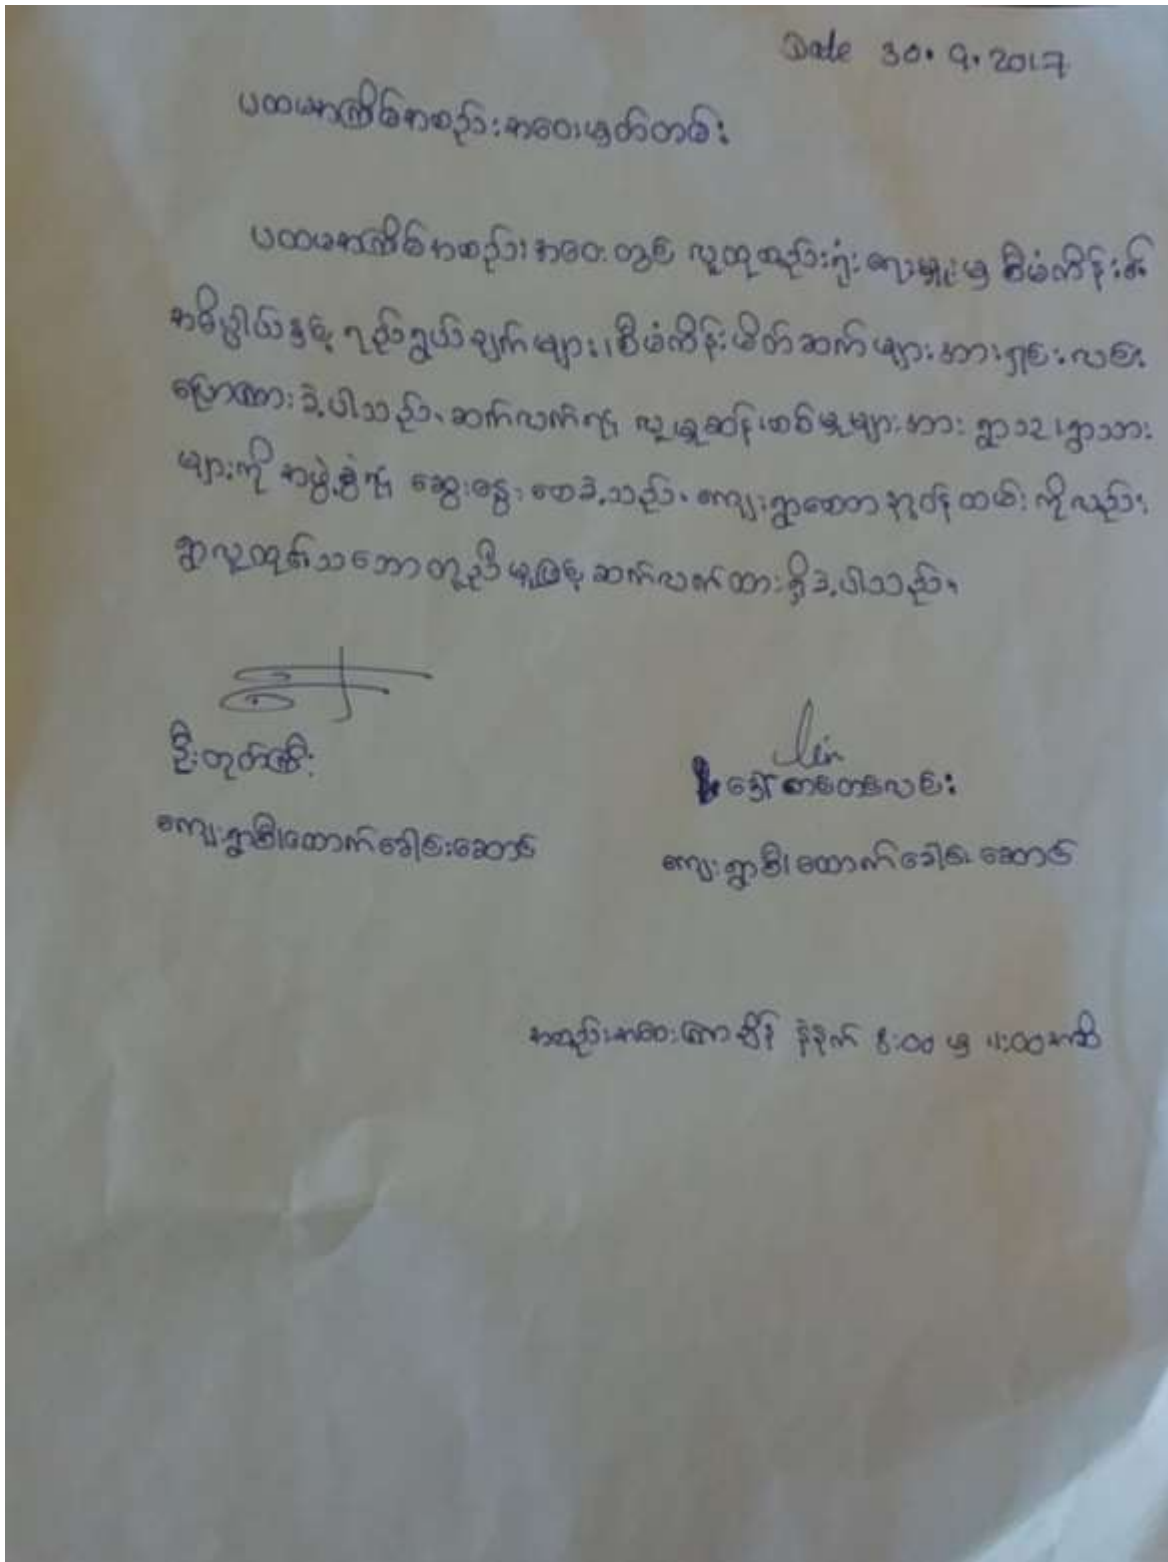 Date 30.9.2017
ပထမအကြိမ်အစည်းအဝေးမှတ်တမ်း
ပထမအကြိမ်အစည်းအဝေးတွင် လူထုစည်းရုံးရေးမှူးမှ စီမံကိန်း၏
အဓိပ္ပါယ်နှင့် ရည်ရွယ်ချက်များ၊ စီမံကိန်းမိတ်ဆက်များအားရှင်းလင်း
ပြောကြားခဲ့ပါသည်။ ဆက်လက်၍ လူမှုဆန်းစစ်မှုများအား ရွာသူ၊ရွာသား
များကို အဖွဲ့ခွဲ၍ ဆွေးနွေးစေခဲ့သည်။ ကျေးရွာစေတနာ့ဝန်ထမ်းကိုလည်း
ရွာလူထု၏သဘောတူညီမှုဖြင့် ဆက်လက်ထားရှိခဲ့ပါသည်။
ဦးတုတ်ကြီး
lin
ဒေါ် လင်း
ကျေးရွာစီ/ထောက်ခေါင်းဆောင်
ကျေးရွာစီ/ထောက်ခေါင်းဆောင်
အစည်းအဝေးကြာချိန် နံနက် 8:00 မှ 11:00အထိ